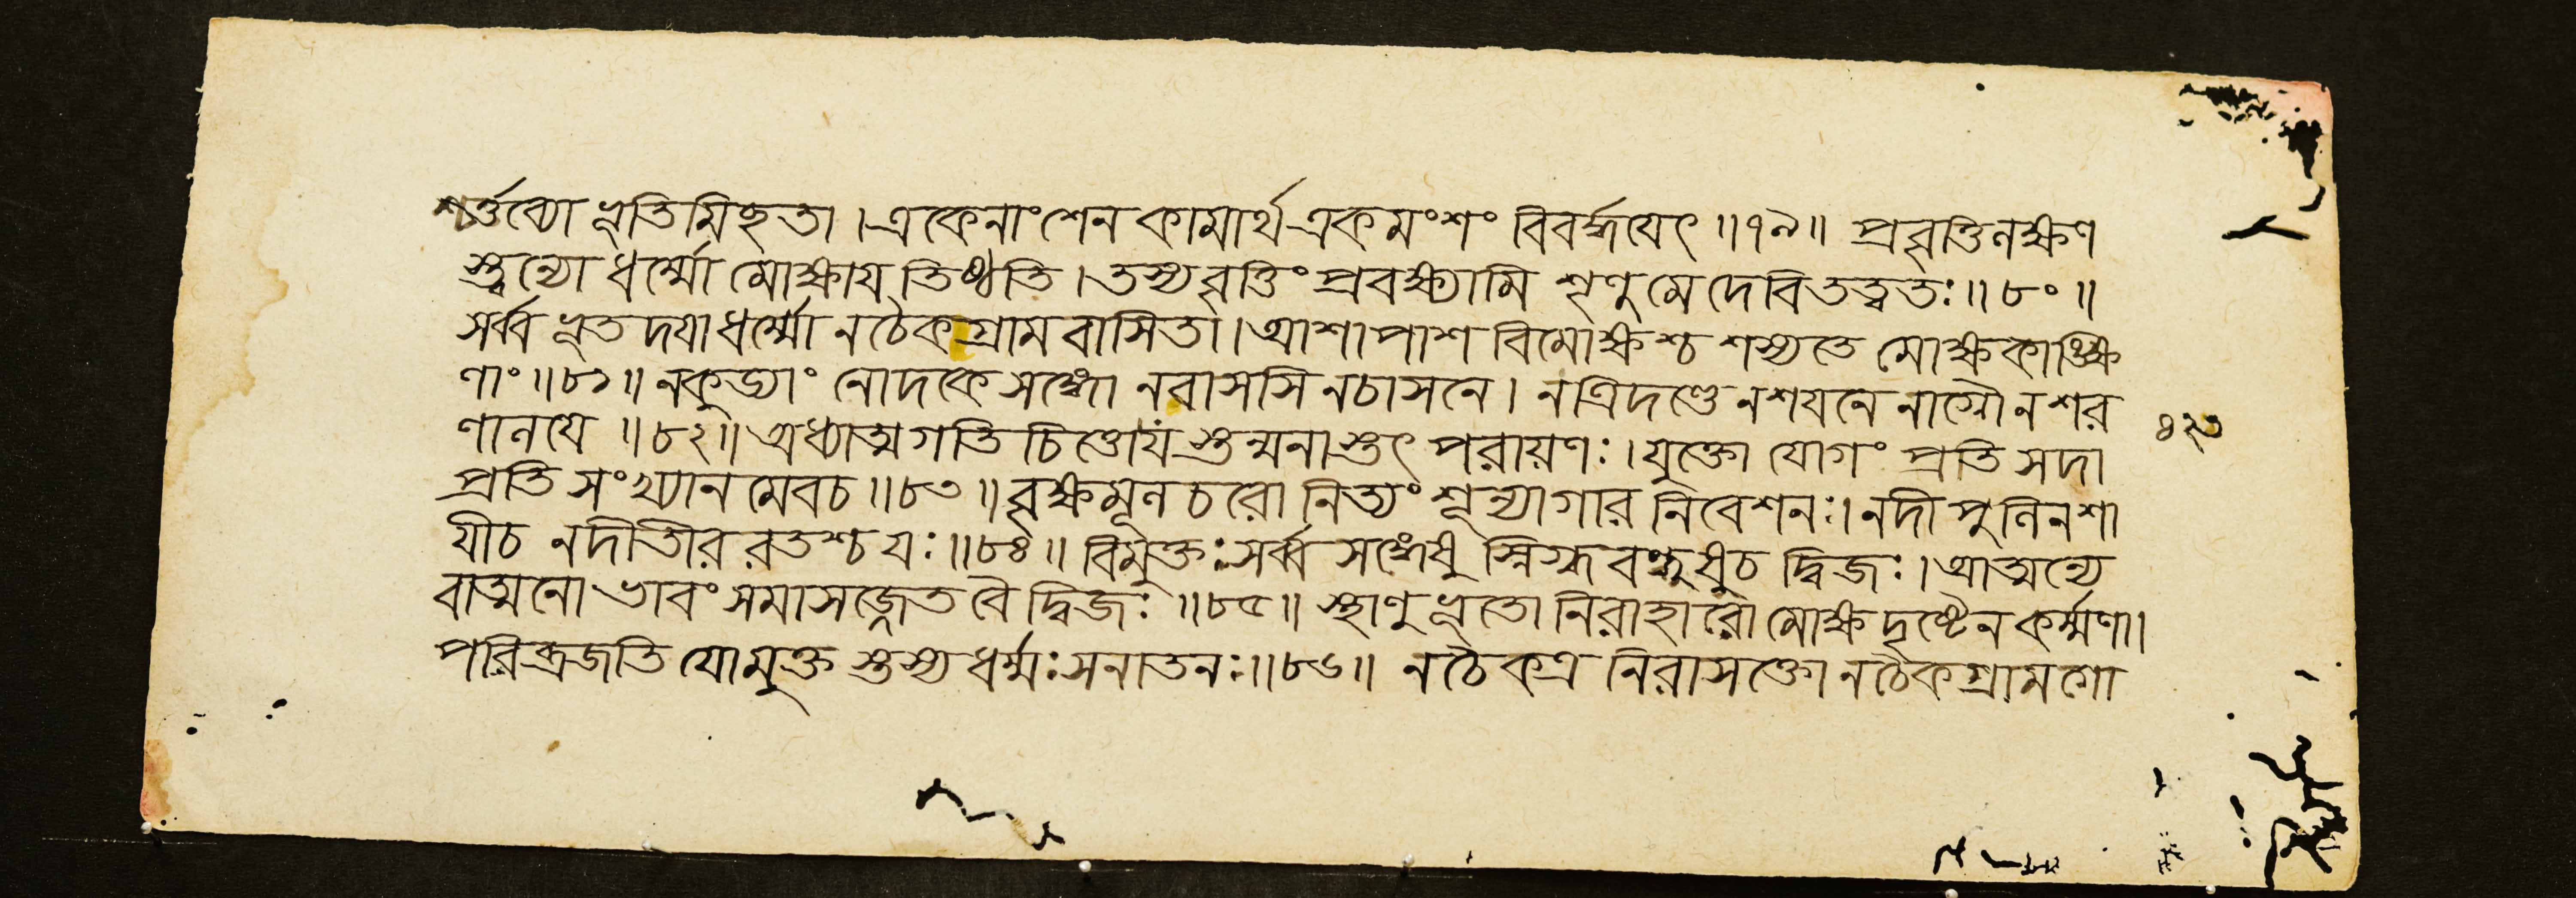 শ্চর্ত্তব্যো ভূতিমিচ্ছতা । একেনাংশেন কামার্থ একমংশং বিবর্দ্ধয়েৎ ॥৭৯॥ প্রবৃত্তিলক্ষণ
স্ত্বন্যো ধর্ম্মো মোক্ষায় তিষ্ঠতি । তস্য বৃত্তিং প্রবক্ষ্যামি শৃণু মে দেবি তত্ত্বতঃ ॥৮০॥
সর্ব্ব ভূত দয়া ধর্ম্মো ন চৈক গ্রাম বাসিতা । আশা পাশ বিমোক্ষশ্চ শস্যতে মোক্ষ কাঙ্ক্ষি
ণাং ॥৮১॥ ন কুড্যাং নোদকে সঙ্গো ন বাসসি ন চাসনে । ন ত্রিদণ্ডে ন শয়নে নাগ্নৌ ন শর
ণালয়ে ॥৮২॥ অধ্যাত্ম গতি চিত্তো য স্তন্মনাস্তৎ পরায়ণঃ । যুক্তো যোগং প্রতি সদা
প্রতি সংখ্যান মেব চ ॥৮৩॥ বৃক্ষ মূল চরো নিত্যং শূন্যাগার নিবেশনঃ । নদী পুলিন শা
যী চ নদীতীর রতশ্চ যঃ ॥৮৪॥ বিমুক্তঃ সর্ব্ব সঙ্গেষু স্নিগ্ধ বন্ধুষু চ দ্বিজঃ । আত্মন্যে
বাত্মনো ভাবং সমাসজ্জেত বৈ দ্বিজঃ ॥৮৫॥ স্থাণু ভূতো নিরাহারো মোক্ষ দৃষ্টেন কর্ম্মণা ।
পরিব্রজতি যো মুক্ত স্তস্য ধর্ম্মঃ সনাতনঃ ॥৮৬॥ ন চৈকত্র নিরাসক্তো ন চৈক গ্রাম গো
৪২৩